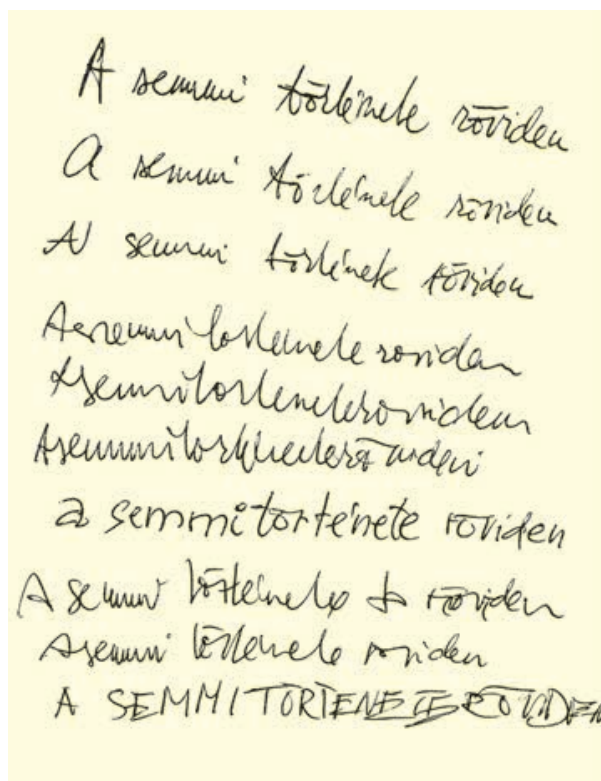 A semmi története röviden
A semmi története röviden
A semmi története röviden
A semmi tortenete roviden
Asemmitorteneteroviden
Asemmitorteneteröviden
a semmitorténete röviden
A semmi története röviden
Asemmi története roviden
A SEMMI TÖRTENETE RÖVIDEN